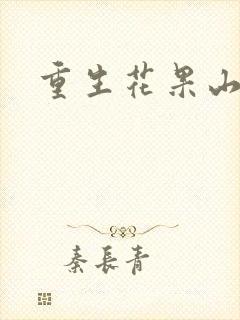 重生花果山
秦長青